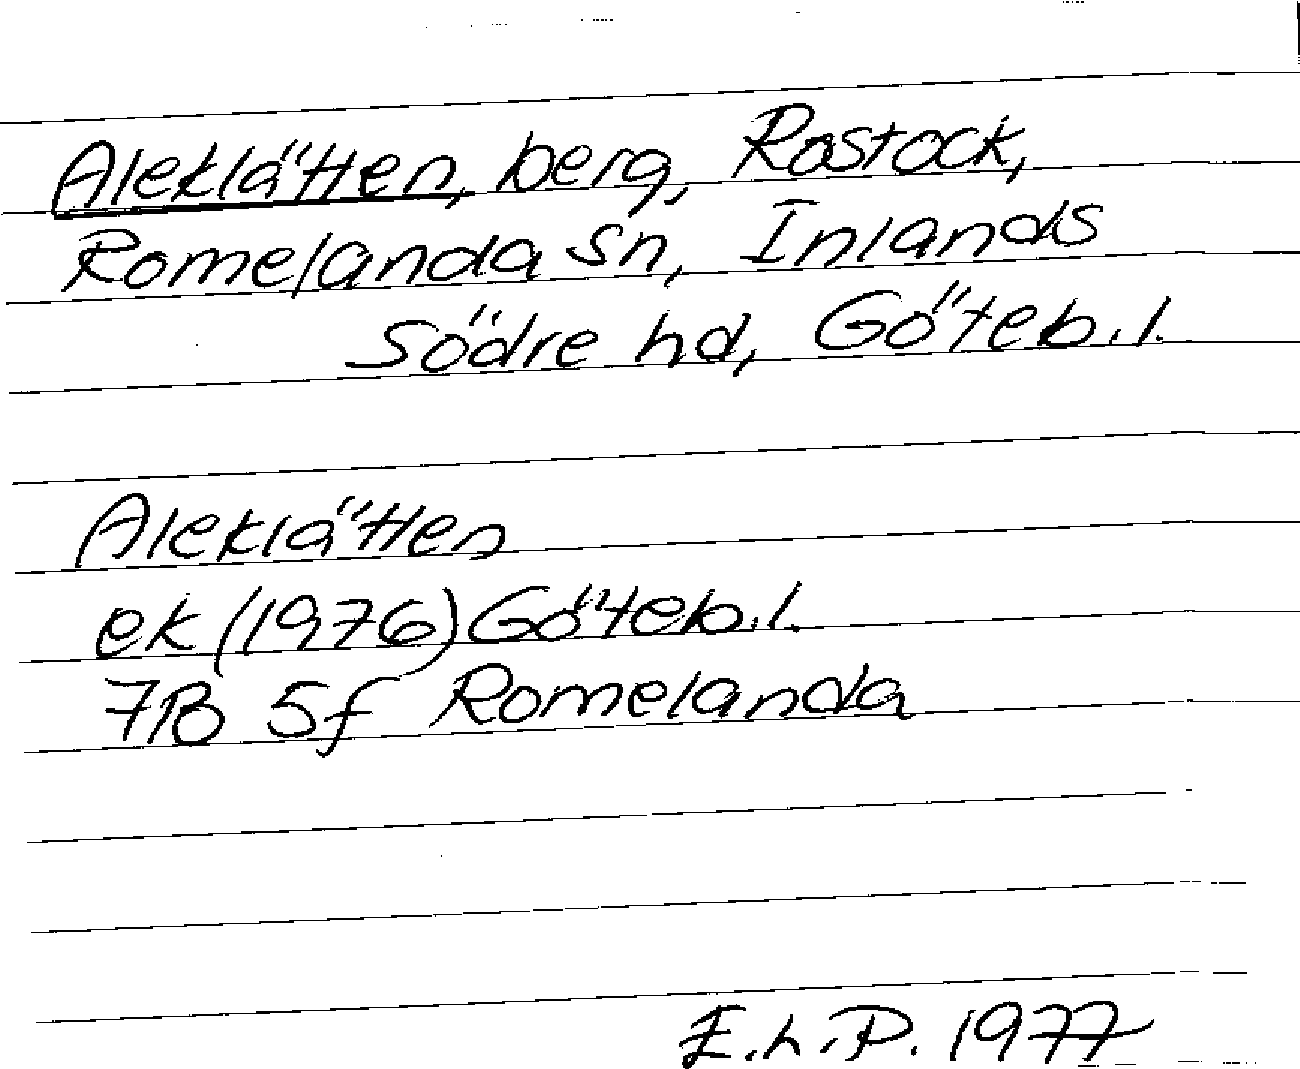 Aleklätten, berg, Rostock,
Romelanda sn, Inlands
Södre hd, Göteb.l.
Aleklätten
ek (1976) Göteb.l.
7B 5f Romelanda
E.L.P. 1977